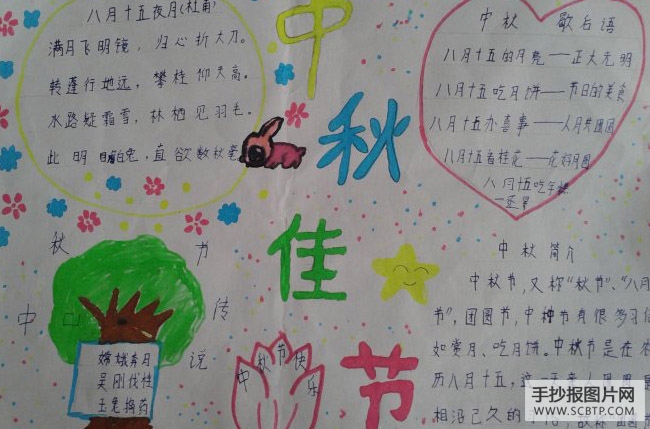 八月十五夜月(杜甫)
满月飞明镜，归心折大刀。
转蓬行地远，攀桂仰天高。
水路疑霜雪，林栖见羽毛。
此 直欲数秋毫
中秋佳节
中秋 歇后语
八月十五的月亮——正大光明
八月十五吃月饼——节日的美食
八月十五办喜事——人月共团圆
八月十五看桂花——花好月圆
八月十五吃年糕
中秋节传说
嫦娥奔月
吴刚伐桂
玉兔捣药
中秋节快乐
中秋 简介
中秋节，又称“秋节”、“八月
节”，团圆节，中秋节有很多习俗
如赏月、吃月饼。中秋节是在农
历八月十五，这一天
相沿已久的
手抄报图片网
WWW.SCBTP.COM